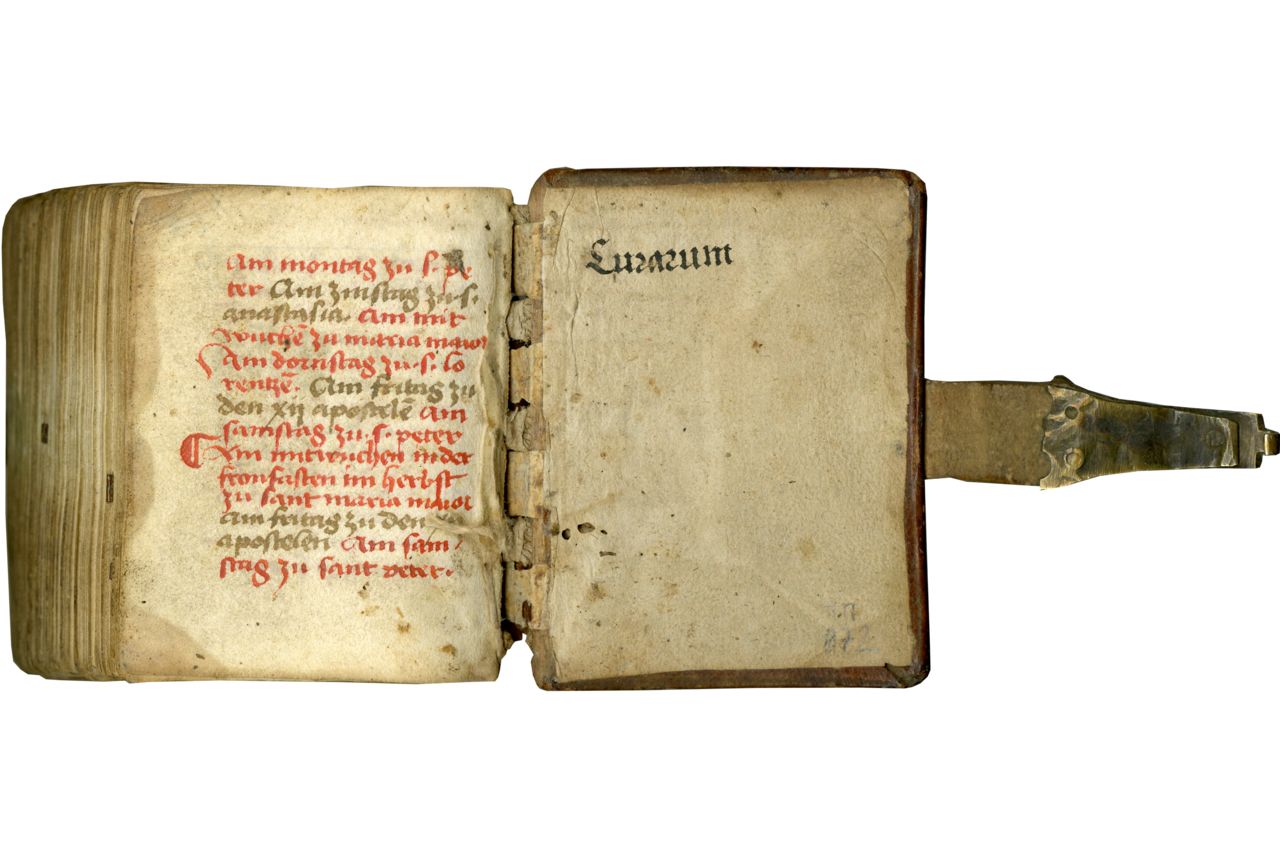 Am montag zu .s. pe
ter Am zinstag zu .s.
anastasia. Am mit
wuchē zu maria maior
Am dornstag zu .s. lo
rentzē. Am fritag zu
den xij apostelē Am
samstag zu .s. peter
Am mitwuchen in der
fronfasten im herbst
zu sant maria maior
Am fritag zu den
apostelen Am sam
stag zu sant peter.
Lurarum